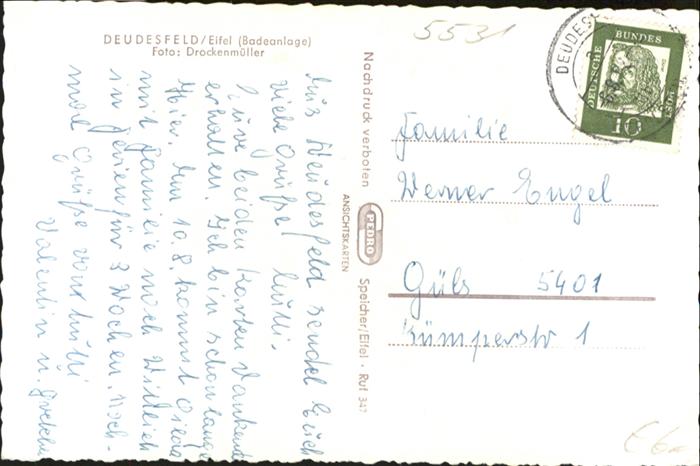 DEUDESFELD/Eifel (Badeanlage)
Foto: Drockenmüller
5531
Aus Deudesfeld sendet Euch
viele Grüße Lulli.
Eure beiden Karten dankend
erhalten. Ich bin schon lange
hier. Am 10.8. kommt
mit Familie nach Wittlich
in Ferien für 3 Wochen. Noch-
mal Grüße von Lulli
Valentin u.
Nachdruck verboten
PEDRO
ANSICHTSKARTEN
Speicher/Eifel · Ruf 347
DEUDES
DEUTSCHE BUNDESPOST
10
Familie
Werner Engel
Güls 5401
Kümperstr 1